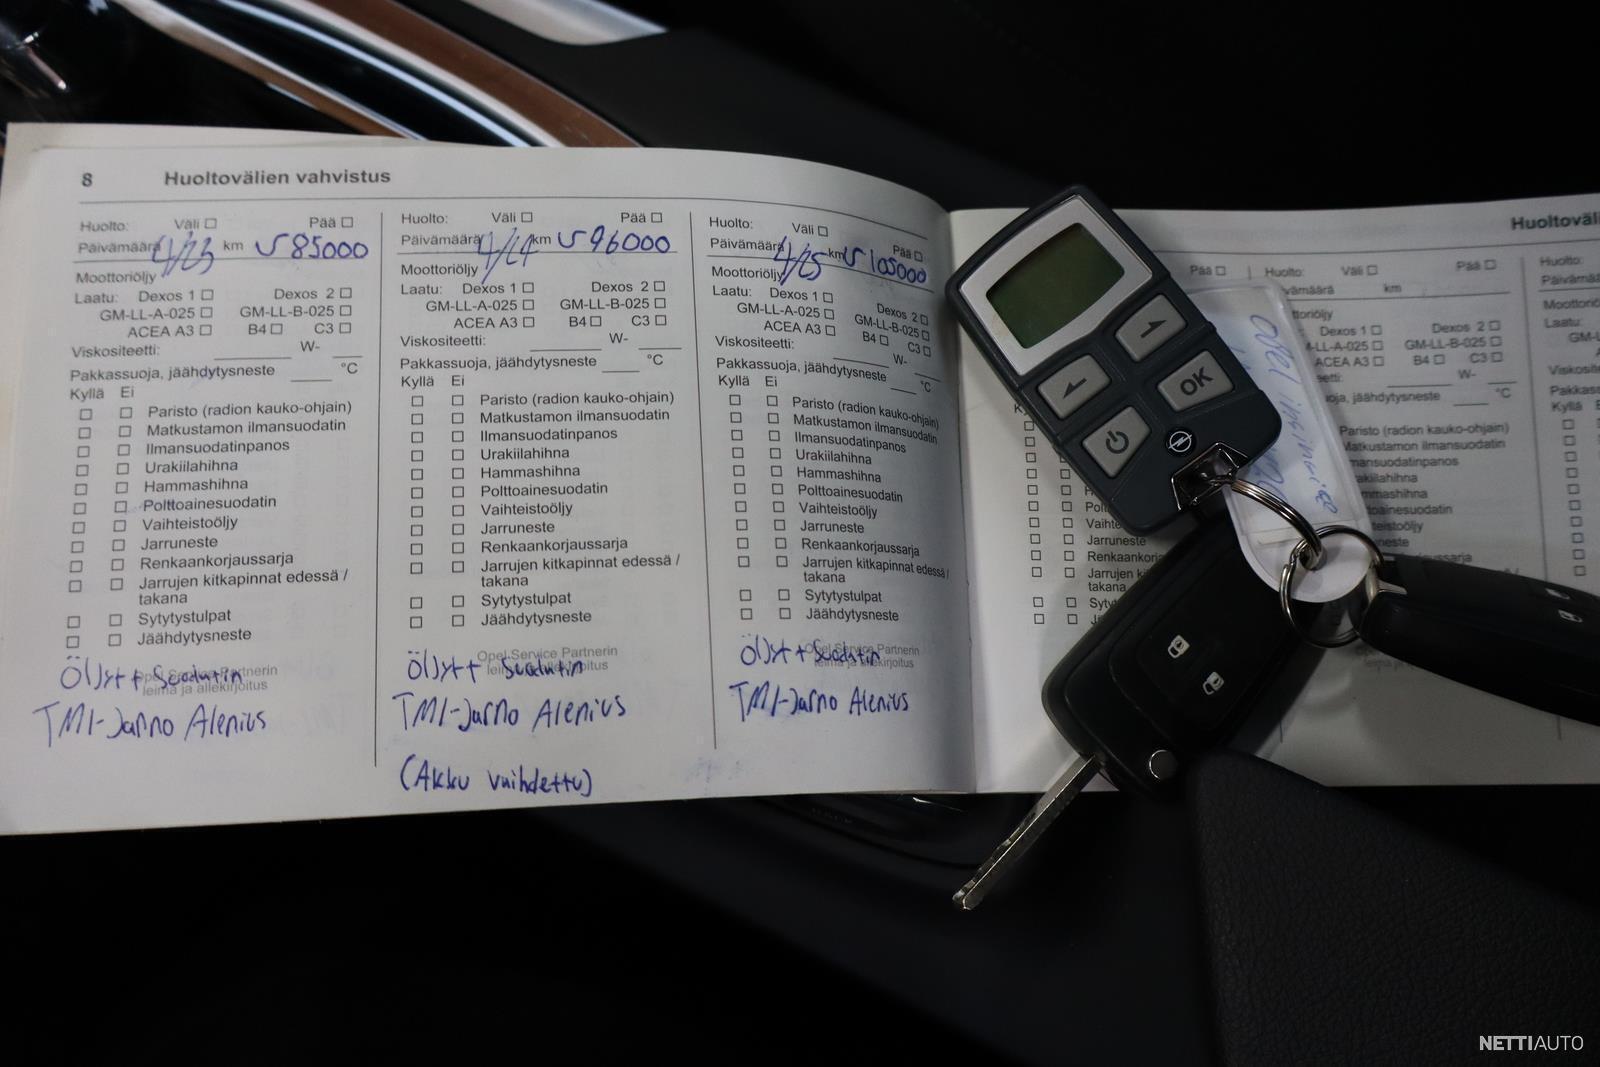 8 Huoltovälien vahvistus
Huolto: Väli Pää
Päivämäärä 4/23 km 85000
Moottoriöljy
Laatu: Dexos 1 Dexos 2
GM-LL-A-025 GM-LL-B-025
ACEA A3 B4 C3
Viskositeetti: W-
Pakkassuoja, jäähdytysneste °C
Kyllä Ei
Paristo (radion kauko-ohjain)
Matkustamon ilmansuodatin
Ilmansuodatinpanos
Urakiilahihna
Hammashihna
Polttoainesuodatin
Vaihteistoöljy
Jarruneste
Renkaankorjaussarja
Jarrujen kitkapinnat edessä /
takana
Sytytystulpat
Jäähdytysneste
Opel Service Partnerin
leima ja allekirjoitus
Öljyt + Suodatin
TMI-Jarno Alenius
Huolto: Väli Pää
Päivämäärä 4/24 km 96000
Moottoriöljy
Laatu: Dexos 1 Dexos 2
GM-LL-A-025 GM-LL-B-025
ACEA A3 B4 C3
Viskositeetti: W-
Pakkassuoja, jäähdytysneste °C
Kyllä Ei
Paristo (radion kauko-ohjain)
Matkustamon ilmansuodatin
Ilmansuodatinpanos
Urakiilahihna
Hammashihna
Polttoainesuodatin
Vaihteistoöljy
Jarruneste
Renkaankorjaussarja
Jarrujen kitkapinnat edessä /
takana
Sytytystulpat
Jäähdytysneste
Opel Service Partnerin
leima ja allekirjoitus
Öljyt + Suodatin
TMI-Jarno Alenius
(Akku vaihdettu)
Huolto: Väli Pää
Päivämäärä 4/25 km 105000
Moottoriöljy
Laatu: Dexos 1 Dexos 2
GM-LL-A-025 GM-LL-B-025
ACEA A3 B4 C3
Viskositeetti: W-
Pakkassuoja, jäähdytysneste °C
Kyllä Ei
Paristo (radion kauko-ohjain)
Matkustamon ilmansuodatin
Ilmansuodatinpanos
Urakiilahihna
Hammashihna
Polttoainesuodatin
Vaihteistoöljy
Jarruneste
Renkaankorjaussarja
Jarrujen kitkapinnat edessä /
takana
Sytytystulpat
Jäähdytysneste
Opel Service Partnerin
leima ja allekirjoitus
Öljyt + Suodatin
TMI-Jarno Alenius
OK
Opel insignia
Pää
Jarruneste
takana
Huolto: Väli Pää
km
Dexos 1 Dexos 2
ACEA A3 B4 C3
W-
jäähdytysneste °C
Paristo (radion kauko-ohjain)
Matkustamon ilmansuodatin
Huolto:
Laatu:
Kyllä
NETTIAUTO